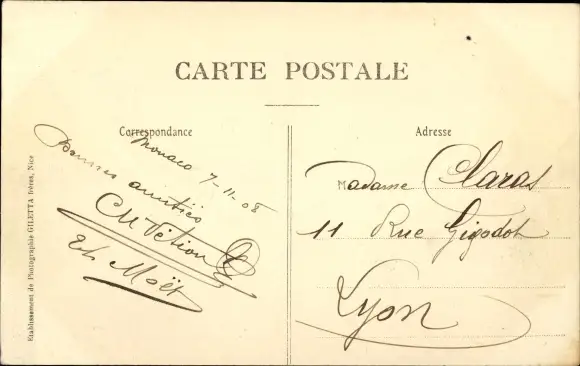 CARTE POSTALE
Correspondance
Monaco 7-11-08
Bonnes amitiés
Ch Pétion
Eh Moët
Adresse
Madame Claras
11 Rue Gigodot
Lyon
Etablissement de Photographie GILETTA frères, Nice